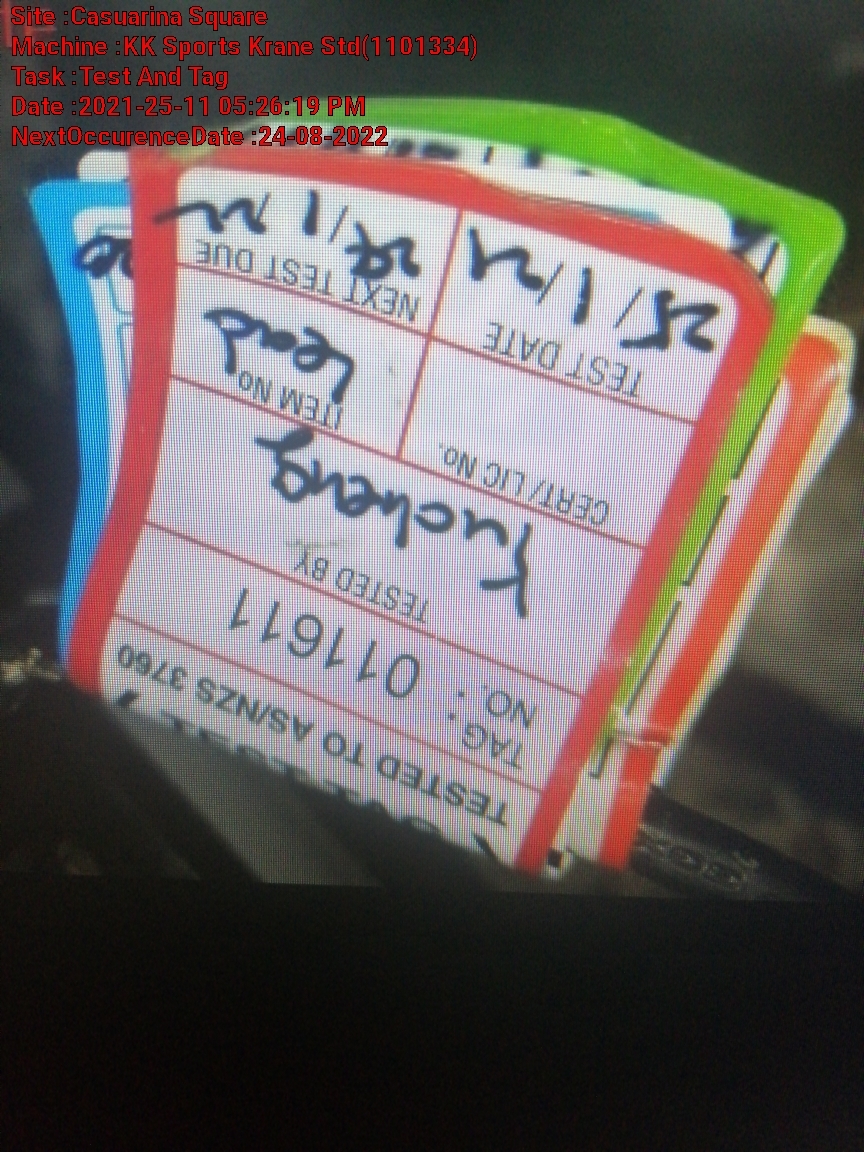 Site :Casuarina Square
Machine :KK Sports Krane Std(1101334)
Task :Test And Tag
Date :2021-25-11 05:26:19 PM
NextOccurenceDate :24-08-2022
TESTED TO AS/NZS 3760
TAG NO.: 011611
TESTED BY
Yucheng
CERT/LIC No.
ITEM No
Lead
TEST DATE
25/1/21
NEXT TEST DUE